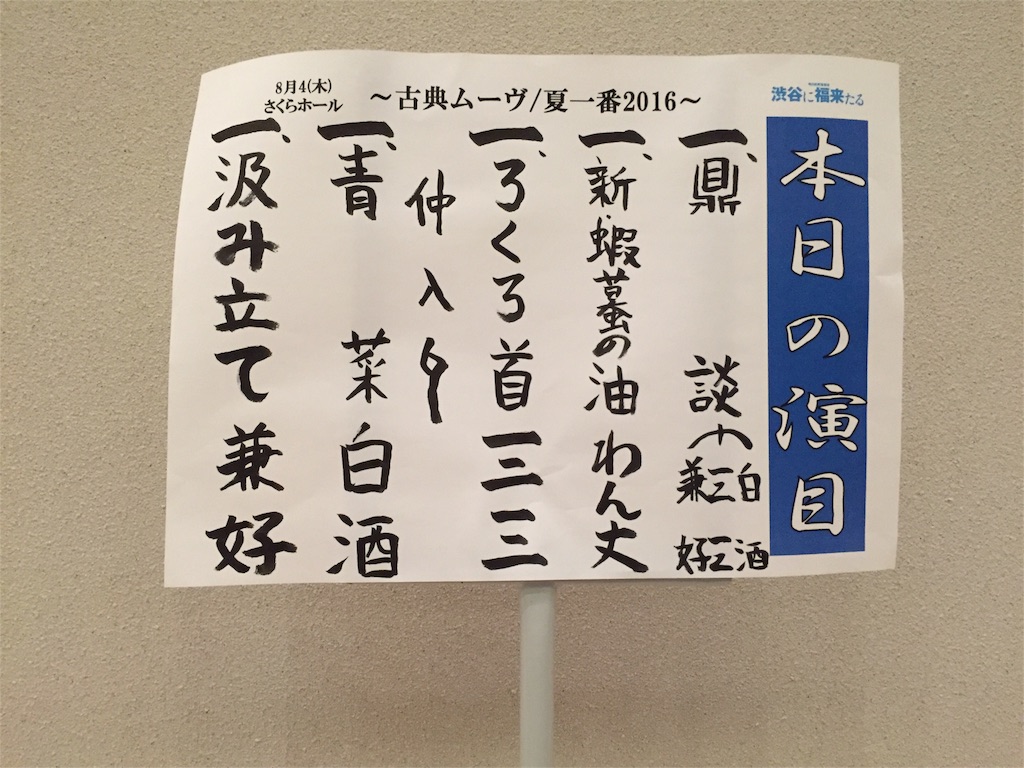 8月4(木)
さくらホール
～古典ムーヴ/夏一番2016～
渋谷に福来たる
本日の演目
一、鼎談
白酒
三三
兼好
一、新・蝦蟇の油 わん丈
一、ろくろ首 三三
仲入り
一、青菜 白酒
一、汲み立て 兼好